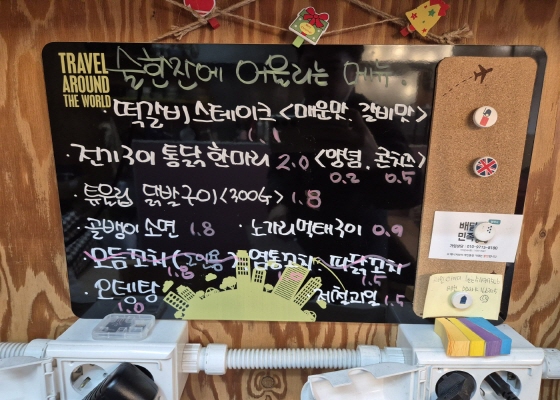 TRAVEL
AROUND
THE WORLD
술한잔에 어울리는 메뉴.
·떡갈비스테이크<매운맛, 갈비맛>
1.1
·전기구이 통닭 한마리 2.0 <양념, 콘치즈>
0.2 0.5
·튜울립 닭발구이<300g> 1.8
·골뱅이 소면 1.8 ·노가리먹태구이 0.9
·모듬꼬치(2인용) 염통꼬치· 파닭꼬치
1.8 1.5
·오뎅탕 제철과일 1.5
1.0
배달
민족